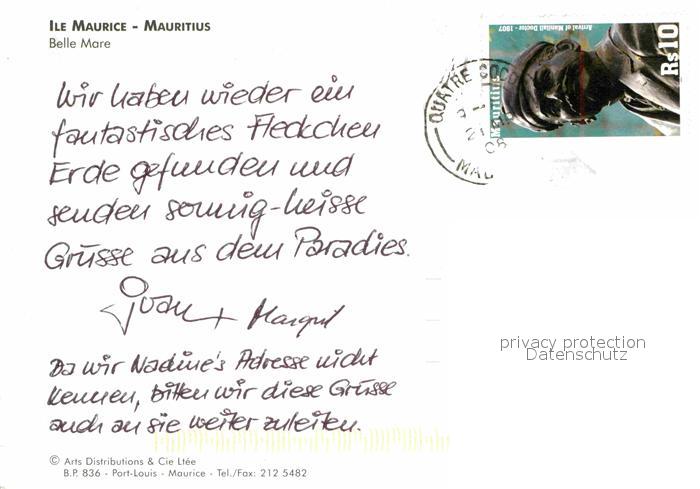 ILE MAURICE - MAURITIUS
Belle Mare
Wir haben wieder ein
fantastisches Fleckchen
Erde gefunden und
senden sonnig-heisse
Grüsse aus dem Paradies.
Ivan + Margrit
Da wir Nadine's Adresse nicht
kennen, bitten wir diese Grüsse
auch an sie weiter zuleiten.
© Arts Distributions & Cie Ltée
B.P. 836 - Port-Louis - Maurice - Tel./Fax: 212 5482
Arrival of Manilall Doctor - 1907
Mauritius
Rs10
QUATRE
08
privacy protection
Datenschutz